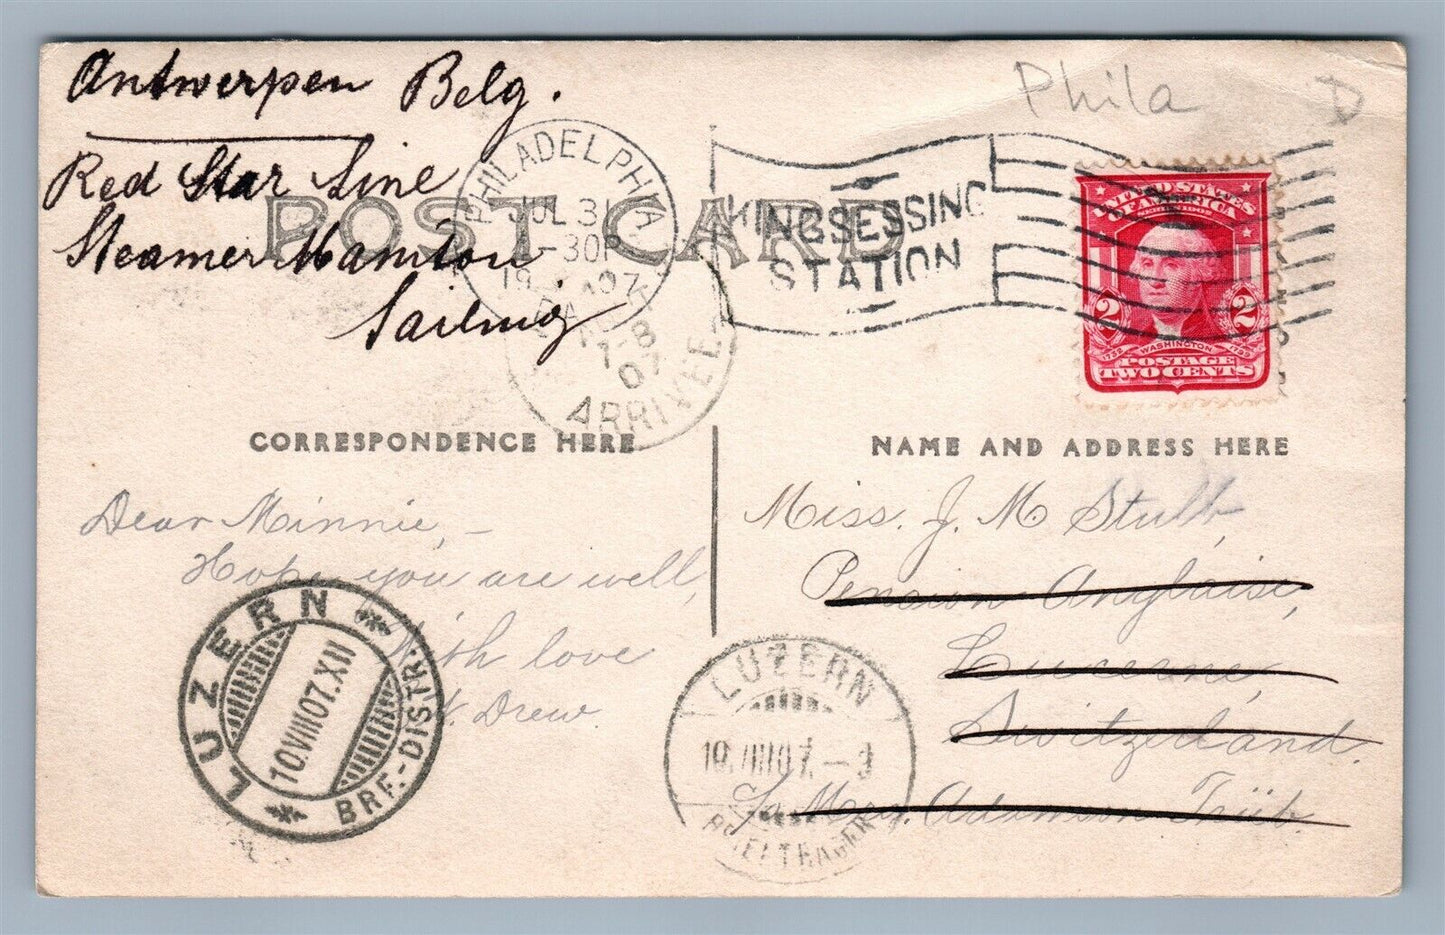 Antwerpen Belg.
Red Star Line
Steamer
Sailing
Phila
D
POST CARD
PHILADELPHIA
JUL 31
-30P
1907
PA.
KINGSESSING
STATION
UNITED STATES
OF AMERICA
SERIES 1902
2 2
1732 WASHINGTON 1799
POSTAGE
TWO CENTS
-8
07
ARRIVEE
CORRESPONDENCE HERE
NAME AND ADDRESS HERE
Dear Minnie, –
Hope you are well,
With love
Drew.
Miss. J. M. Stubb,
Pension Anglaise,
Lucerne,
Switzerland.
c/o Mary. Adamson Trüb.
LUZERN
10.VIII07.XII
BRF.-DISTR.
LUZERN
10.VIII07.
BRIEFTRÄGER